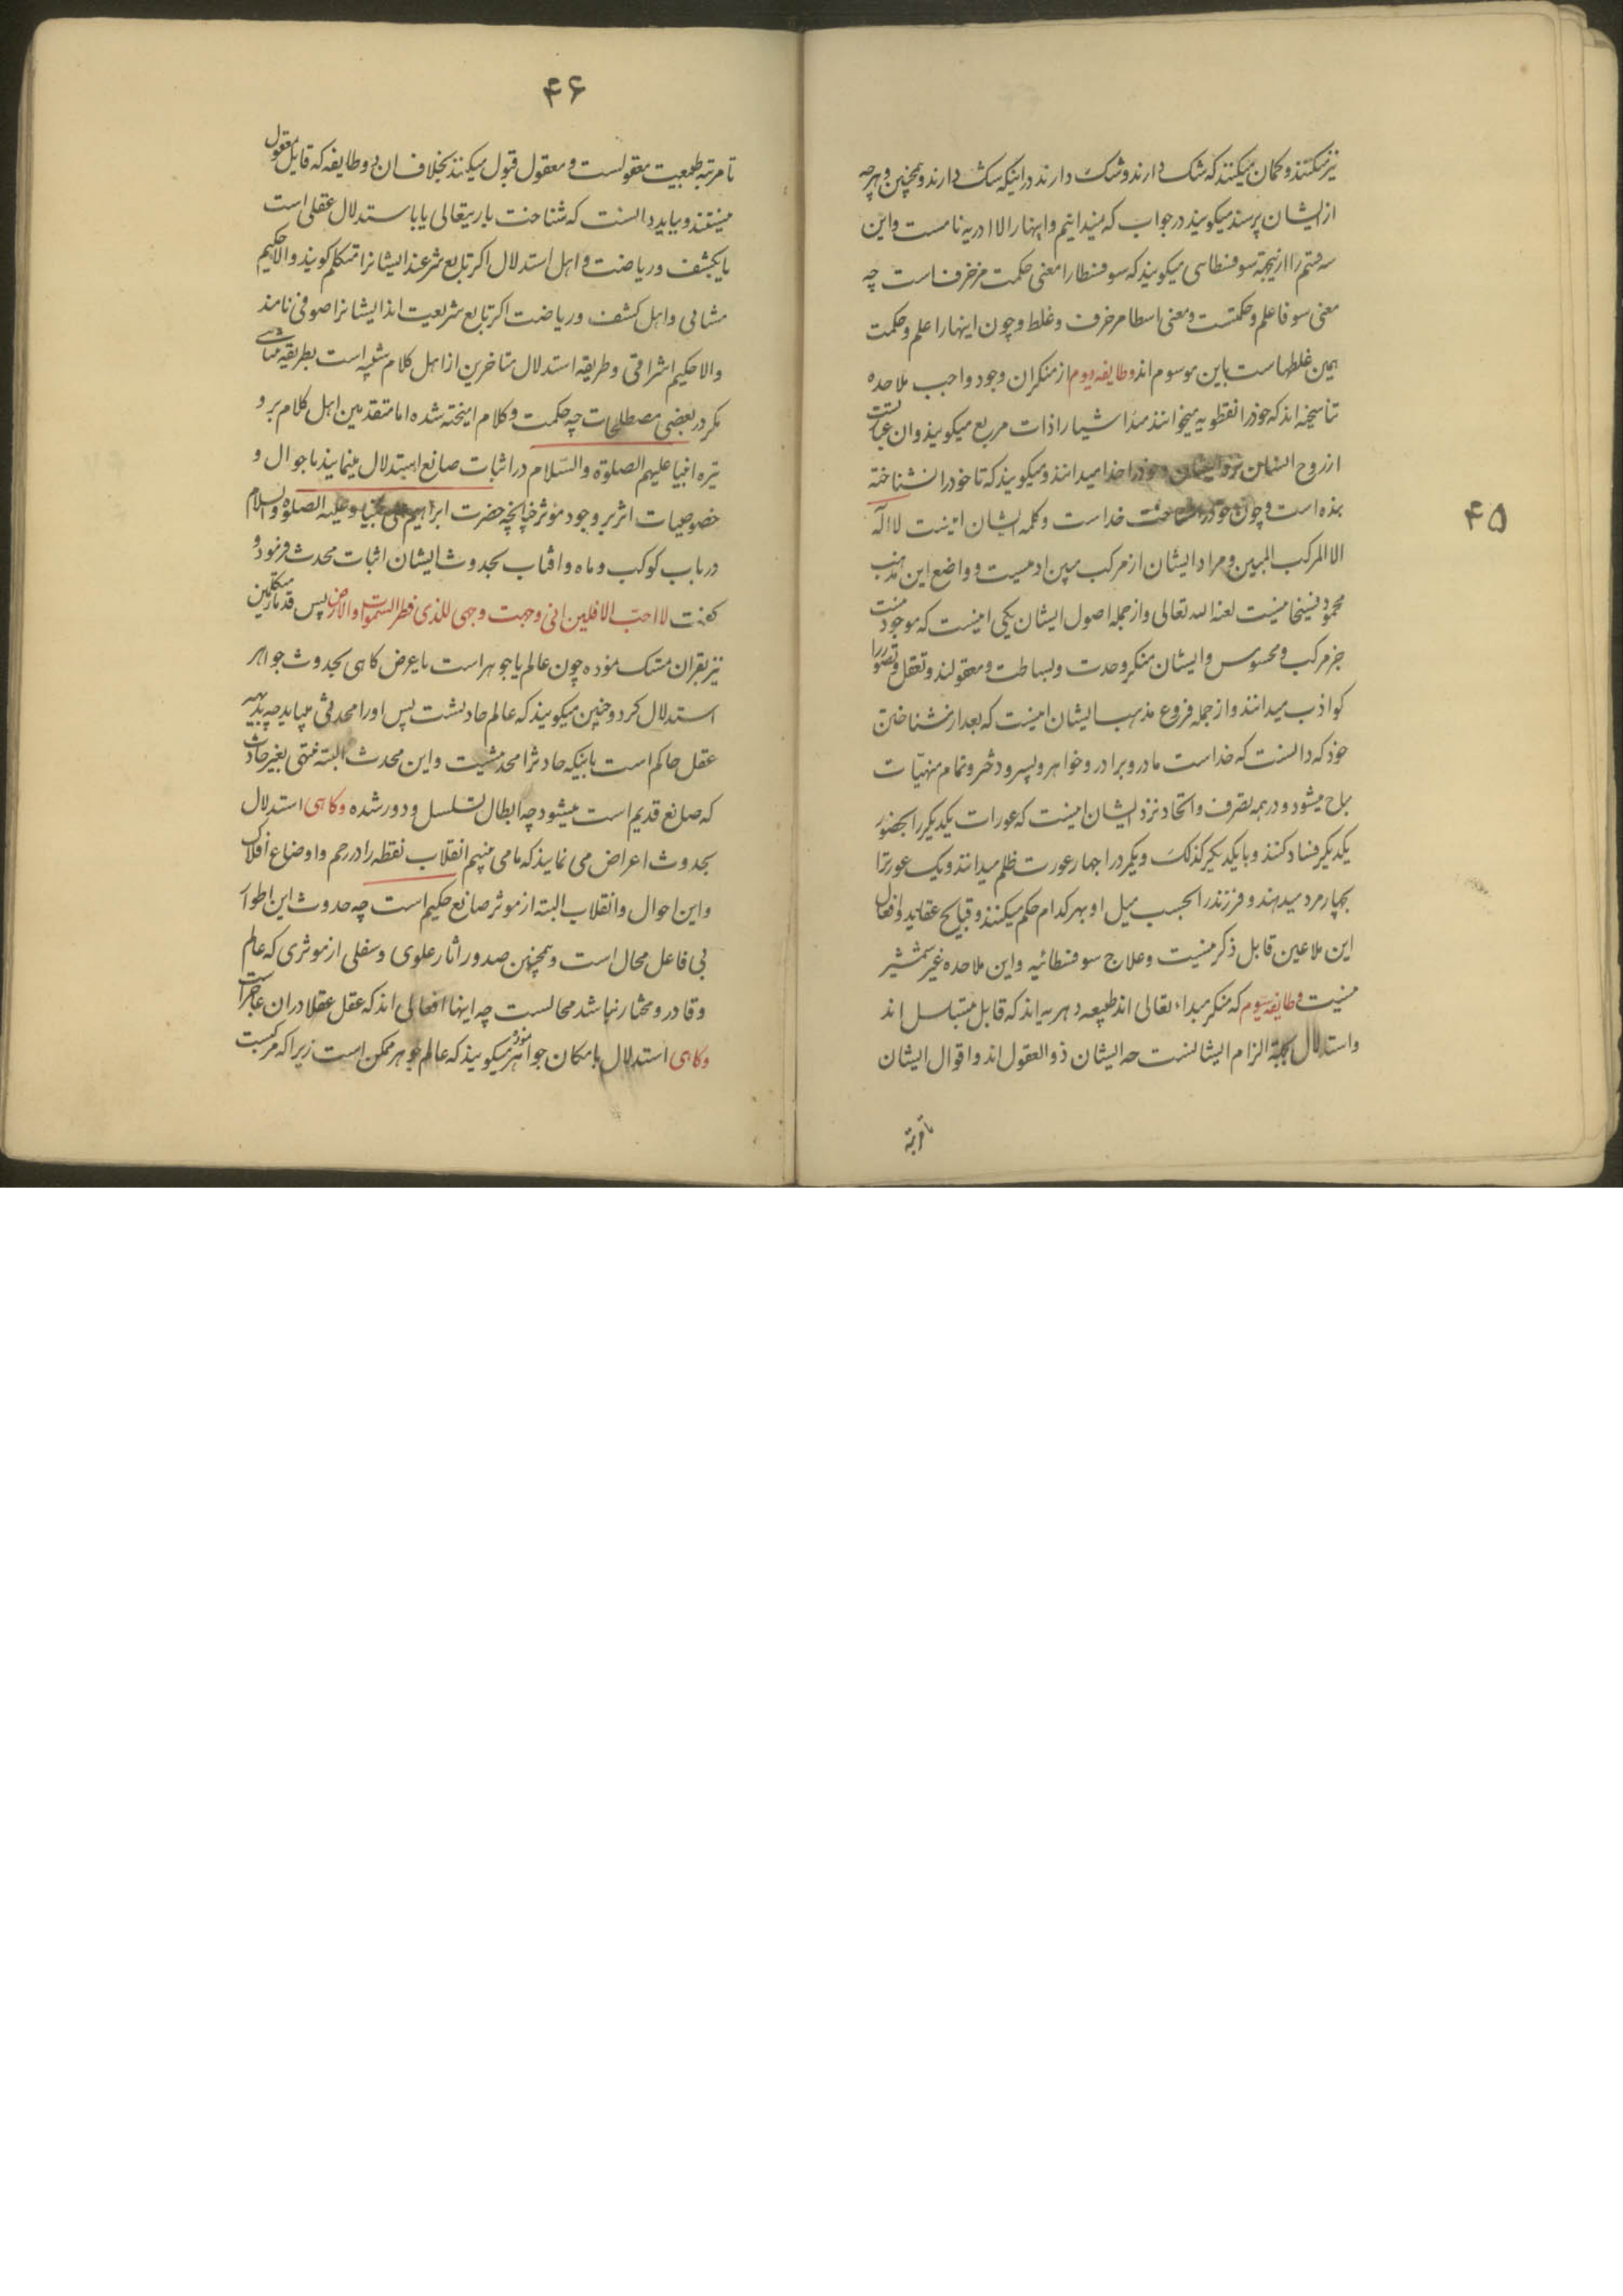 ۴۵
نیز میکنند و گمان میکنند که شک دارند و شک دارند در اینکه شک دارند و همچنین و هر چه
از ایشان پرسند میکویند در جواب که نمیدانیم و اینها را لا ادریه نامست و این
سه قسم را ازینجهة سوفسطاسی میکویند که سوفسطا را معنی حکمت مزخرفست چه
معنی سوفا علم و حکمتست و معنی اسطا مزخرف و غلط و چون اینها را علم و حکمت
همین غلطهاست باین موسوم اند و طایفه دیوم از منکران وجود واجب ملاحده
تناسخیه اند که خود را نقطویه میخوانند مبدا اشیا را ذات مربع میکویند و ان عبارتست
از روح انسان نزد ایشان و خود را خدا میدانند و میکویند که تا خود را نشناخته
بنده است و چون خود را شناخت خداست و کلمه ایشان اینست لا اله
الا المرکب المبین و مراد ایشان از مرکب مبین ادمیست و واضع این مذهب
محمود پسیخانیست لعنه الله تعالی و از جمله اصول ایشان یکی اینست که موجود نیست
جز مرکب و محسوس و ایشان منکر وحدت و بساطت و معقولند و تعقل و تصور را
کواذب میدانند و از جمله فروع مذهب ایشان اینست که بعد از شناختن
خود که دانست که خداست مادر و برادر و خواهر و پسر و دختر و تمام منهیات
مباح میشود و در همه تصرف و اتحاد نزد ایشان اینست که عورات یکدیکر را بحضور
یکدیکر فساد کنند و با یکدیکر کذلک و یکمرد را چهار عورت ظلم میدانند و یک عورت را
بچهار مرد میدهند و فرزند را بحسب میل او بهر کدام حکم میکنند و قبایح عقاید و افعال
این ملاعین قابل ذکر نیست و علاج سوفسطائیه و این ملاحده غیر شمشیر
نیست و طایفه سیوم که منکر مبداء تعالی اند طبیعه دهریه اند که قابل اند
و استدلال بجهة الزام ایشانست چه ایشان ذو العقول اند و اقوال ایشان
تا مرتبه
۴۶
تا مرتبه طبیعیت معقولست و معقول قبول میکنند بخلاف ان دو طایفه که قایل معقول
نیستند و بباید دانست که شناخت باریتعالی یا باستدلال عقلی است
یا بکشف و ریاضت و اهل استدلال اکر تابع شرعند ایشانرا متکلم کویند و الا حکیم
مشائی و اهل کشف و ریاضت اکر تابع شریعت اند ایشانرا صوفی نامند
و الا حکیم اشراقی و طریقه استدلال متاخرین از اهل کلام شبیه است بطریقه مشائی
مکر در بعضی مصطلحات چه حکمت و کلام امیخته شده اما متقدمین اهل کلام بر و
تیره انبیا علیهم الصلوة و السلام در اثبات صانع استدلال مینمایند باحوال و
خصوصیات اثر بر وجود موثر چنانچه حضرت ابراهیم علی نبینا و علیه الصلوه و السلام
در باب کوکب و ماه و افتاب بحدوث ایشان اثبات محدث فرمود و
کفت لا احب الافلین انی وجهت وجهی للذی فطر السموات و الارض پس قدماء متکلمین
نیز بقران متمسک نموده چون عالم یا جوهر است یا عرض کاهی بحدوث جواهر
استدلال کرد و چنین میکویند که عالم حادثست پس او را محدثی میباید چه بدیهه
عقل حاکم است باینکه حادث را محدثیست و این محدث البته منتهی بغیر حادث
که صانع قدیم است میشود چه ابطال تسلسل و دور شده و کاهی استدلال
بحدوث اعراض می نمایند که ما می بینیم انقلاب نقطه را در رحم و اوضاع افلاک
و این احوال و انقلاب البته از موثر صانع حکیم است چه حدوث این اطوار
بی فاعل محال است و همچنین صدور اثار علوی و سفلی از موثری که عالم
و قادر و مختار نباشد محالست چه اینها افعالی اند که عقل عقلا در ان عاجز است
و کاهی استدلال بامکان جواهر نموده میکویند که عالم جوهر ممکن است زیرا که مرکبست